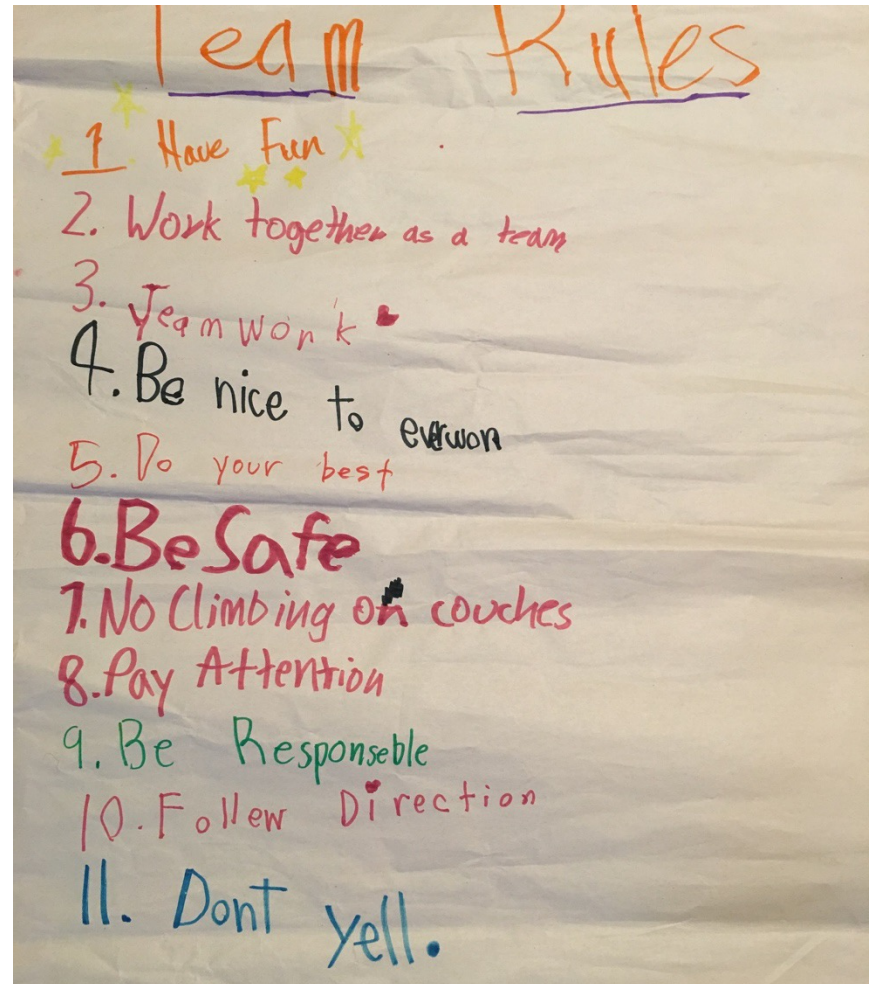 Team Rules
1 Have Fun
2. Work together as a team
3. Teamwork
4. Be nice to everwon
5. Do your best
6. Be Safe
7. No Climbing on couches
8. Pay Attention
9. Be Responseble
10. Follew Direction
11. Dont yell.